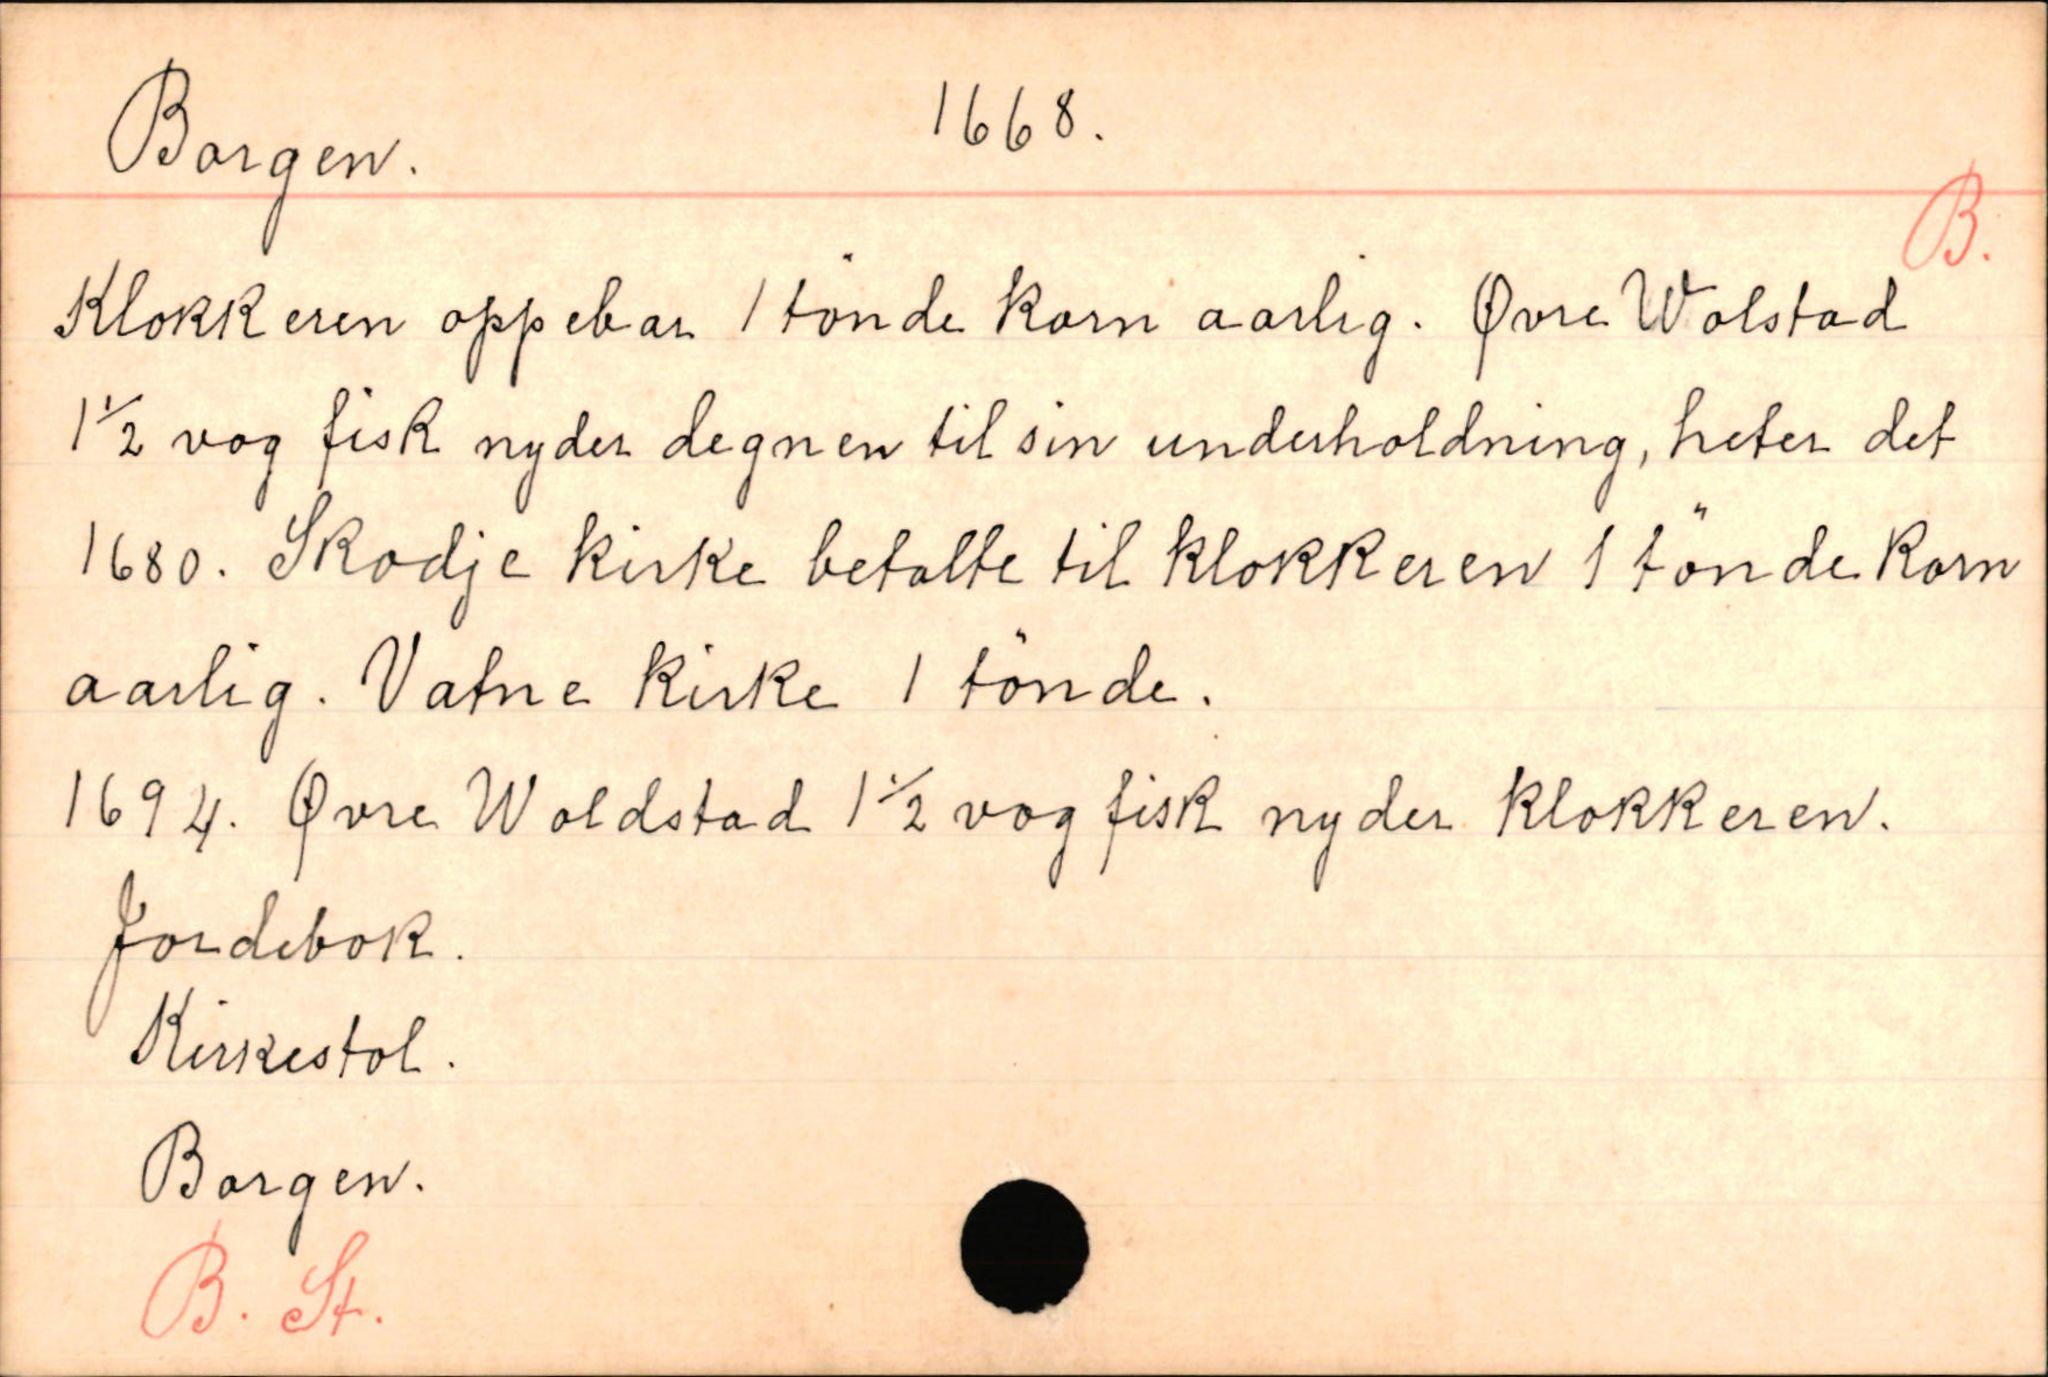 Borgen. 1668.
B.
Klokkeren oppebar 1 tönde korn aarlig. Øvre Wolstad
1 1/2 vog fisk nyder degnen til sin underholdning, heter det
1680. Skodje kirke betalte til klokkeren 1 tönde korn
aarlig. Vatne kirke 1 tönde.
1694. Øvre Woldstad 1 1/2 vog fisk nyder klokkeren.
Jordebok.
Kirkestol.
Borgen.
B. St.